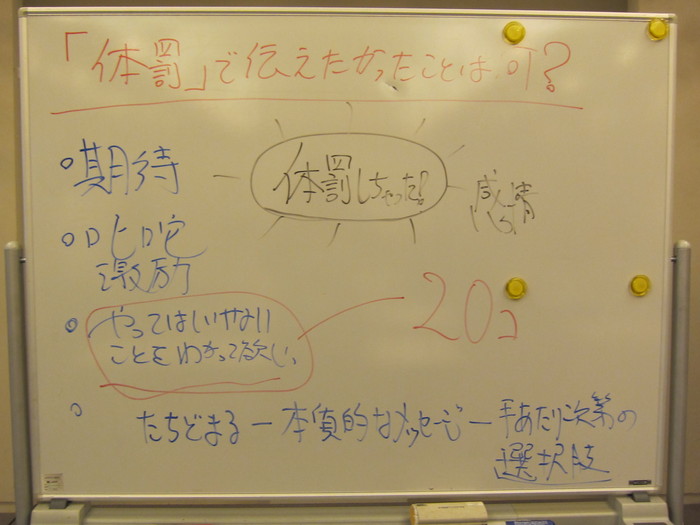 「体罰」で伝えたかったことは、何?
○期待
体罰しちゃった!
感情
○叱咤
激励
○やってはいけない
ことをわかって欲しい、
20コ
○たちどまるー本質的なメッセージー手あたり次第の
選択肢